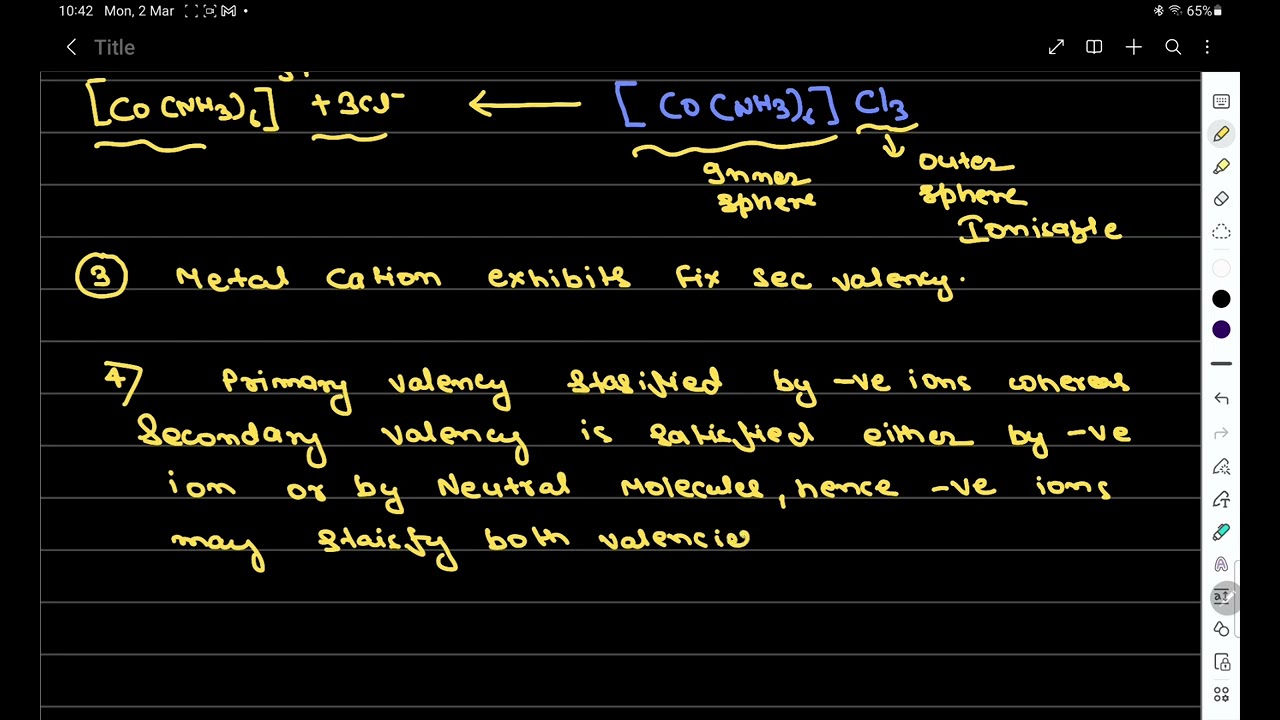 10:42 Mon, 2 Mar
65%
Title
[Co(NH3)6]3+ + 3Cl- ← [Co(NH3)6]Cl3
Inner sphere
outer sphere
Ionisable
3 Metal cation exhibits fix sec valency.
4) Primary valency stasified by -ve ions whereas
Secondary valency is satisfied either by -ve
ion or by Neutral Molecules, hence -ve ions
may staisfy both valencie